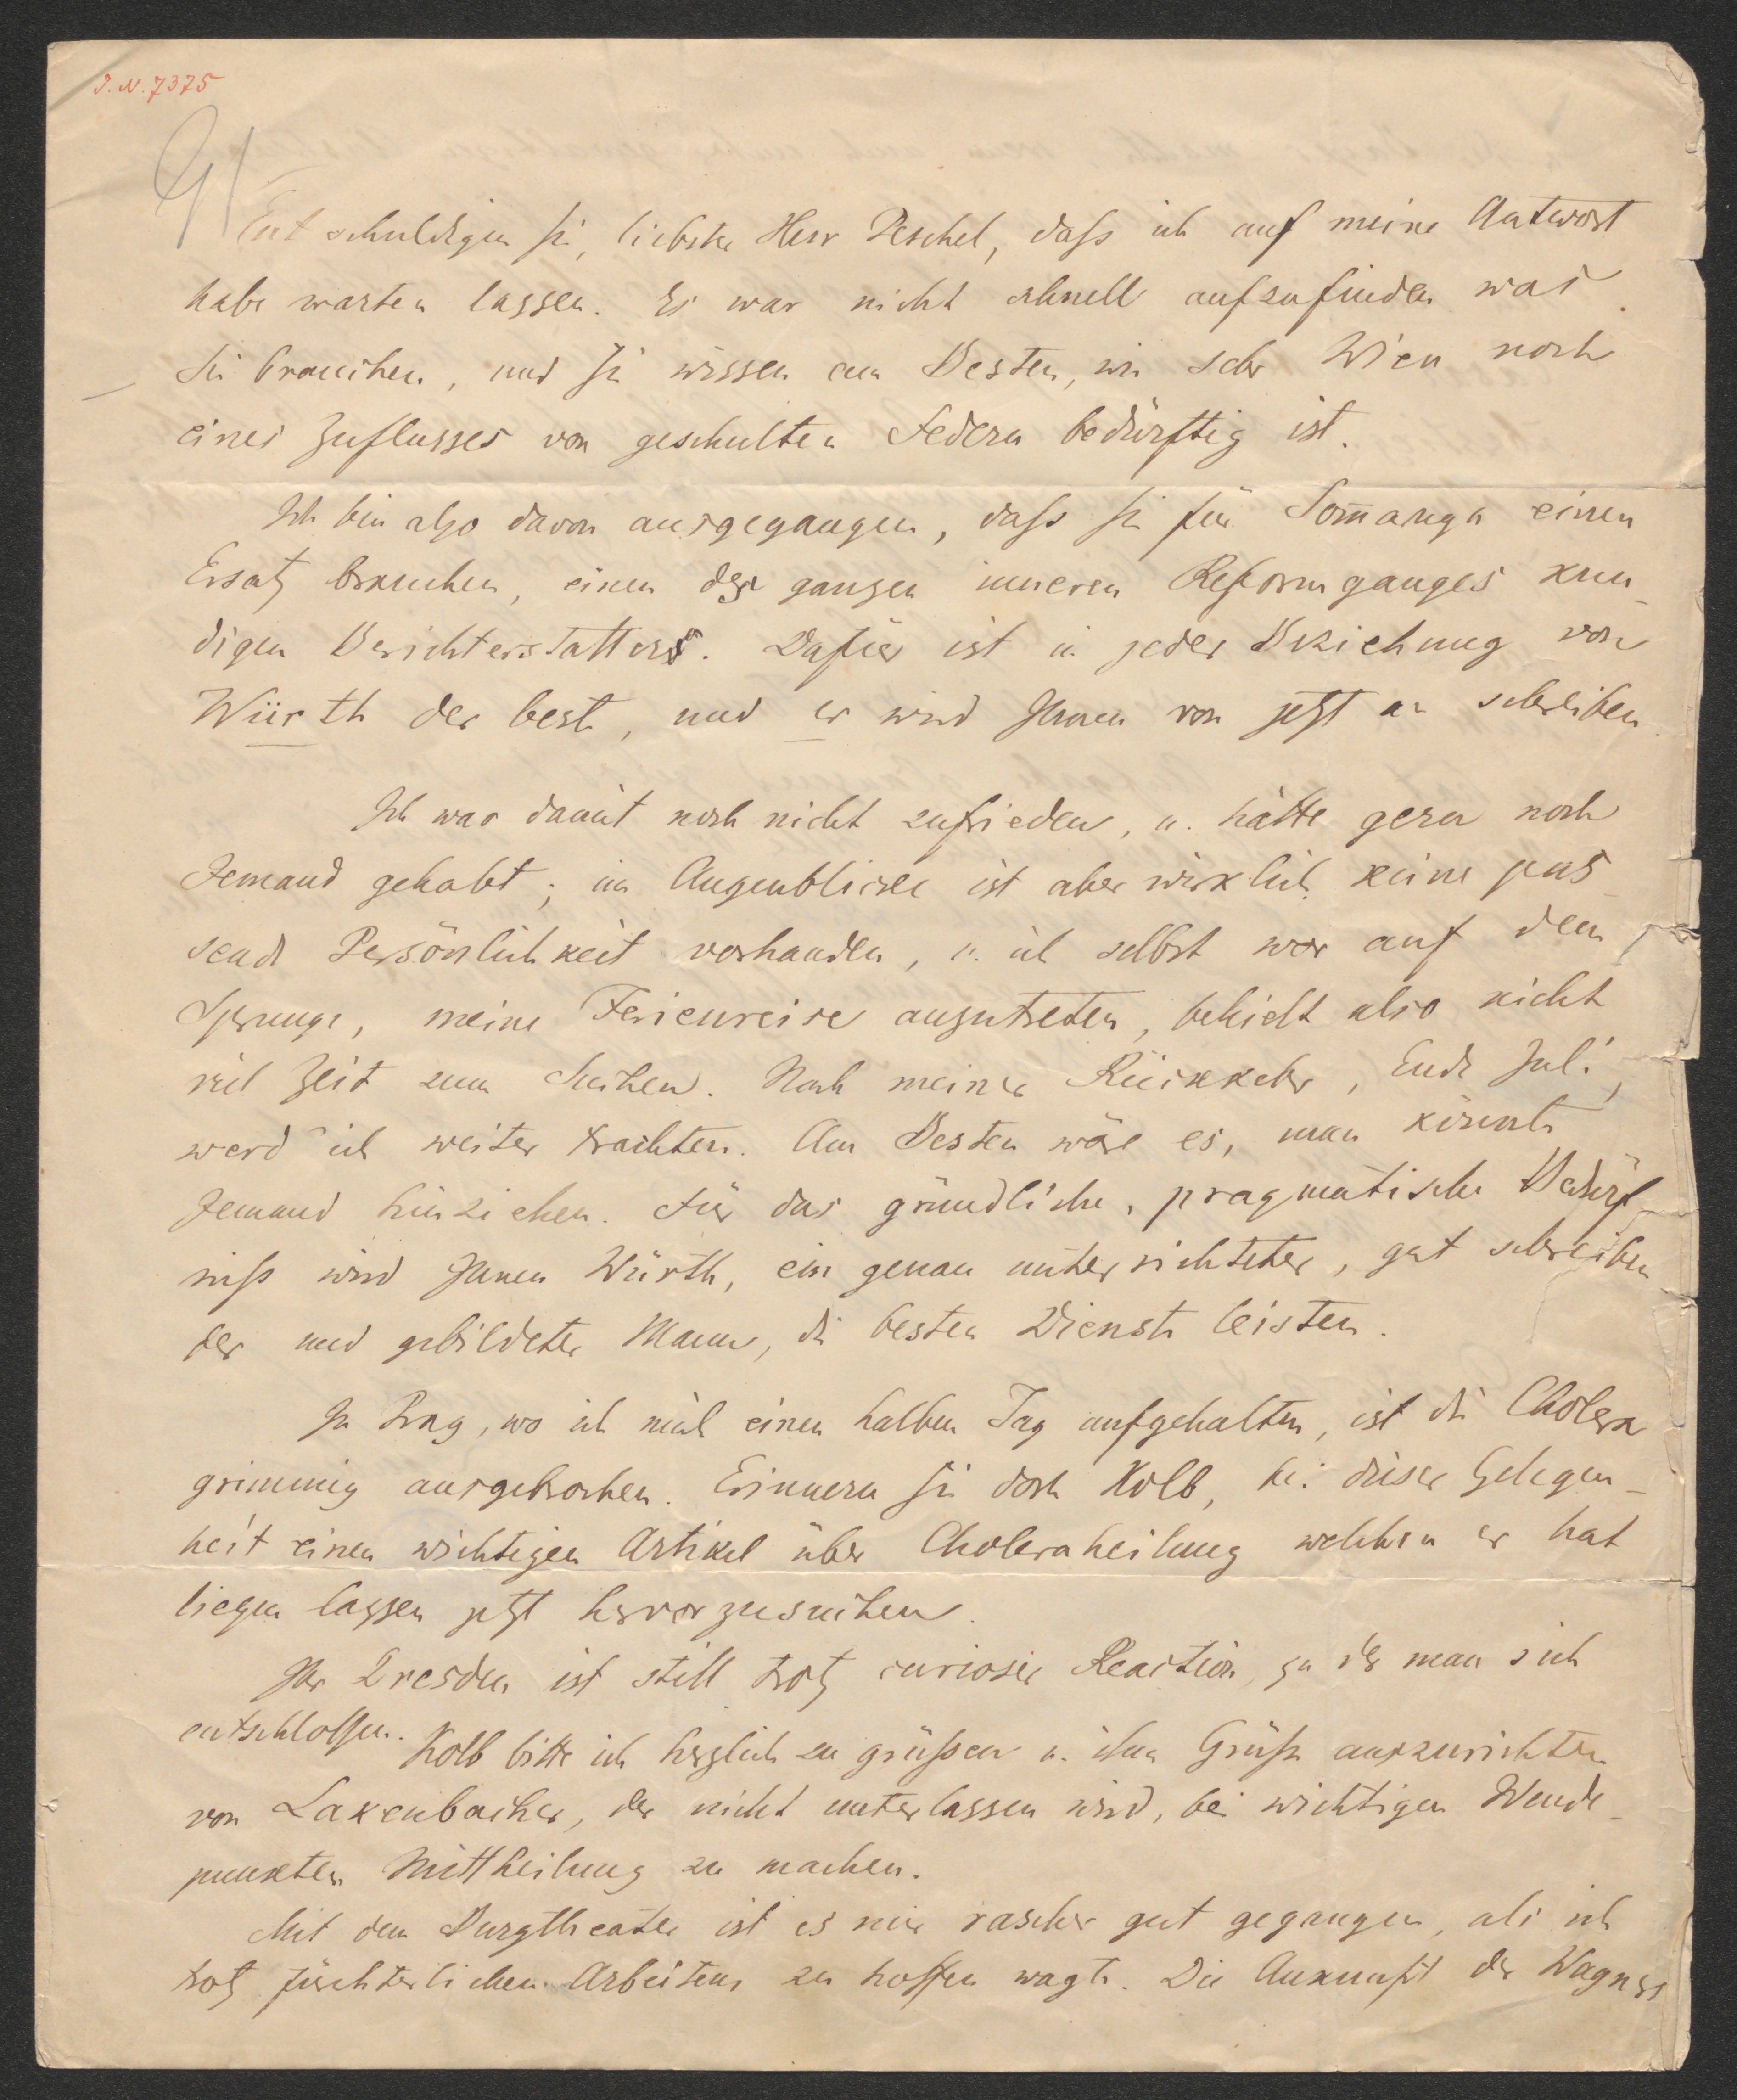 I.N. 7375
Entschuldigen Sie, liebster Herr Peschel, daß ich auf meine Antwort
habe warten lassen. Es war nicht schnell aufzufinden was
Sie brauchen, und Sie wissen am Besten, wie sehr Wien noch
eines Zuflusses von geschulten Federn bedürftig ist.
Ich bin also davon ausgegangen, daß Sie für Som̅aruga einen
Ersatz brauchen, einen des ganzen inneren Reformganges kun-
digen Berichterstatters. Dafür ist in jeder Beziehung von
Würth der beste, und er wird Ihnen von jetzt an schreiben.
Ich war damit noch nicht zufrieden, u. hätte gern noch
Jemand gehabt; im Augenblicke ist aber wirklich keine pas-
sende Persönlichkeit vorhanden, u. ich selbst war auf dem
Sprunge, meine Ferienreise anzutreten, behielt also nicht
viel Zeit zum Suchen. Nach meiner Rückkehr, Ende Juli,
werd' ich weiter trachten. Am Besten wäre es, man könnte
Jemand hinziehen. Für das gründliche, pragmatische Bedürf-
niß wird Ihnen Würth, ein genau unterrichteter, gut schreiben
der und gebildeter Mann, die besten Dienste leisten.
In Prag, wo ich mich einen halben Tag aufgehalten, ist die Cholera
grimmig ausgebrochen. Erinnern Sie doch Kolb, bei dieser Gelegen-
heit einen wichtigen Artikel über Choleraheilung welchen er hat
liegen lassen jetzt hervorzusuchen.
Ihr Dresden ist still trotz curioser Reaction, zu der man sich
entschlossen. Kolb bitte ich herzlich zu grüßen u. ihm Grüße auszurichten
von Laxenbacher, der nicht unterlassen wird, bei wichtigen Wende-
punkten Mittheilung zu machen.
Mit dem Burgtheater ist es mir rascher gut gegangen, als ich
trotz fürchterlichen Arbeitens zu hoffen wagte. Die Ankunft der Wagner